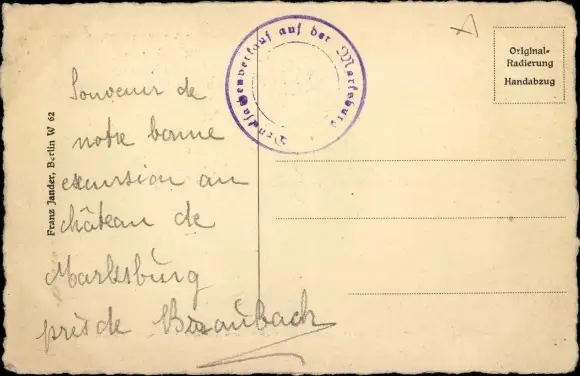 Souvenir de
notre bonne
excursion au
château de
Marksburg
près de Braubach
Franz Jander, Berlin W 62
Drucksachenverkauf auf der Marksburg
Original-
Radierung
Handabzug